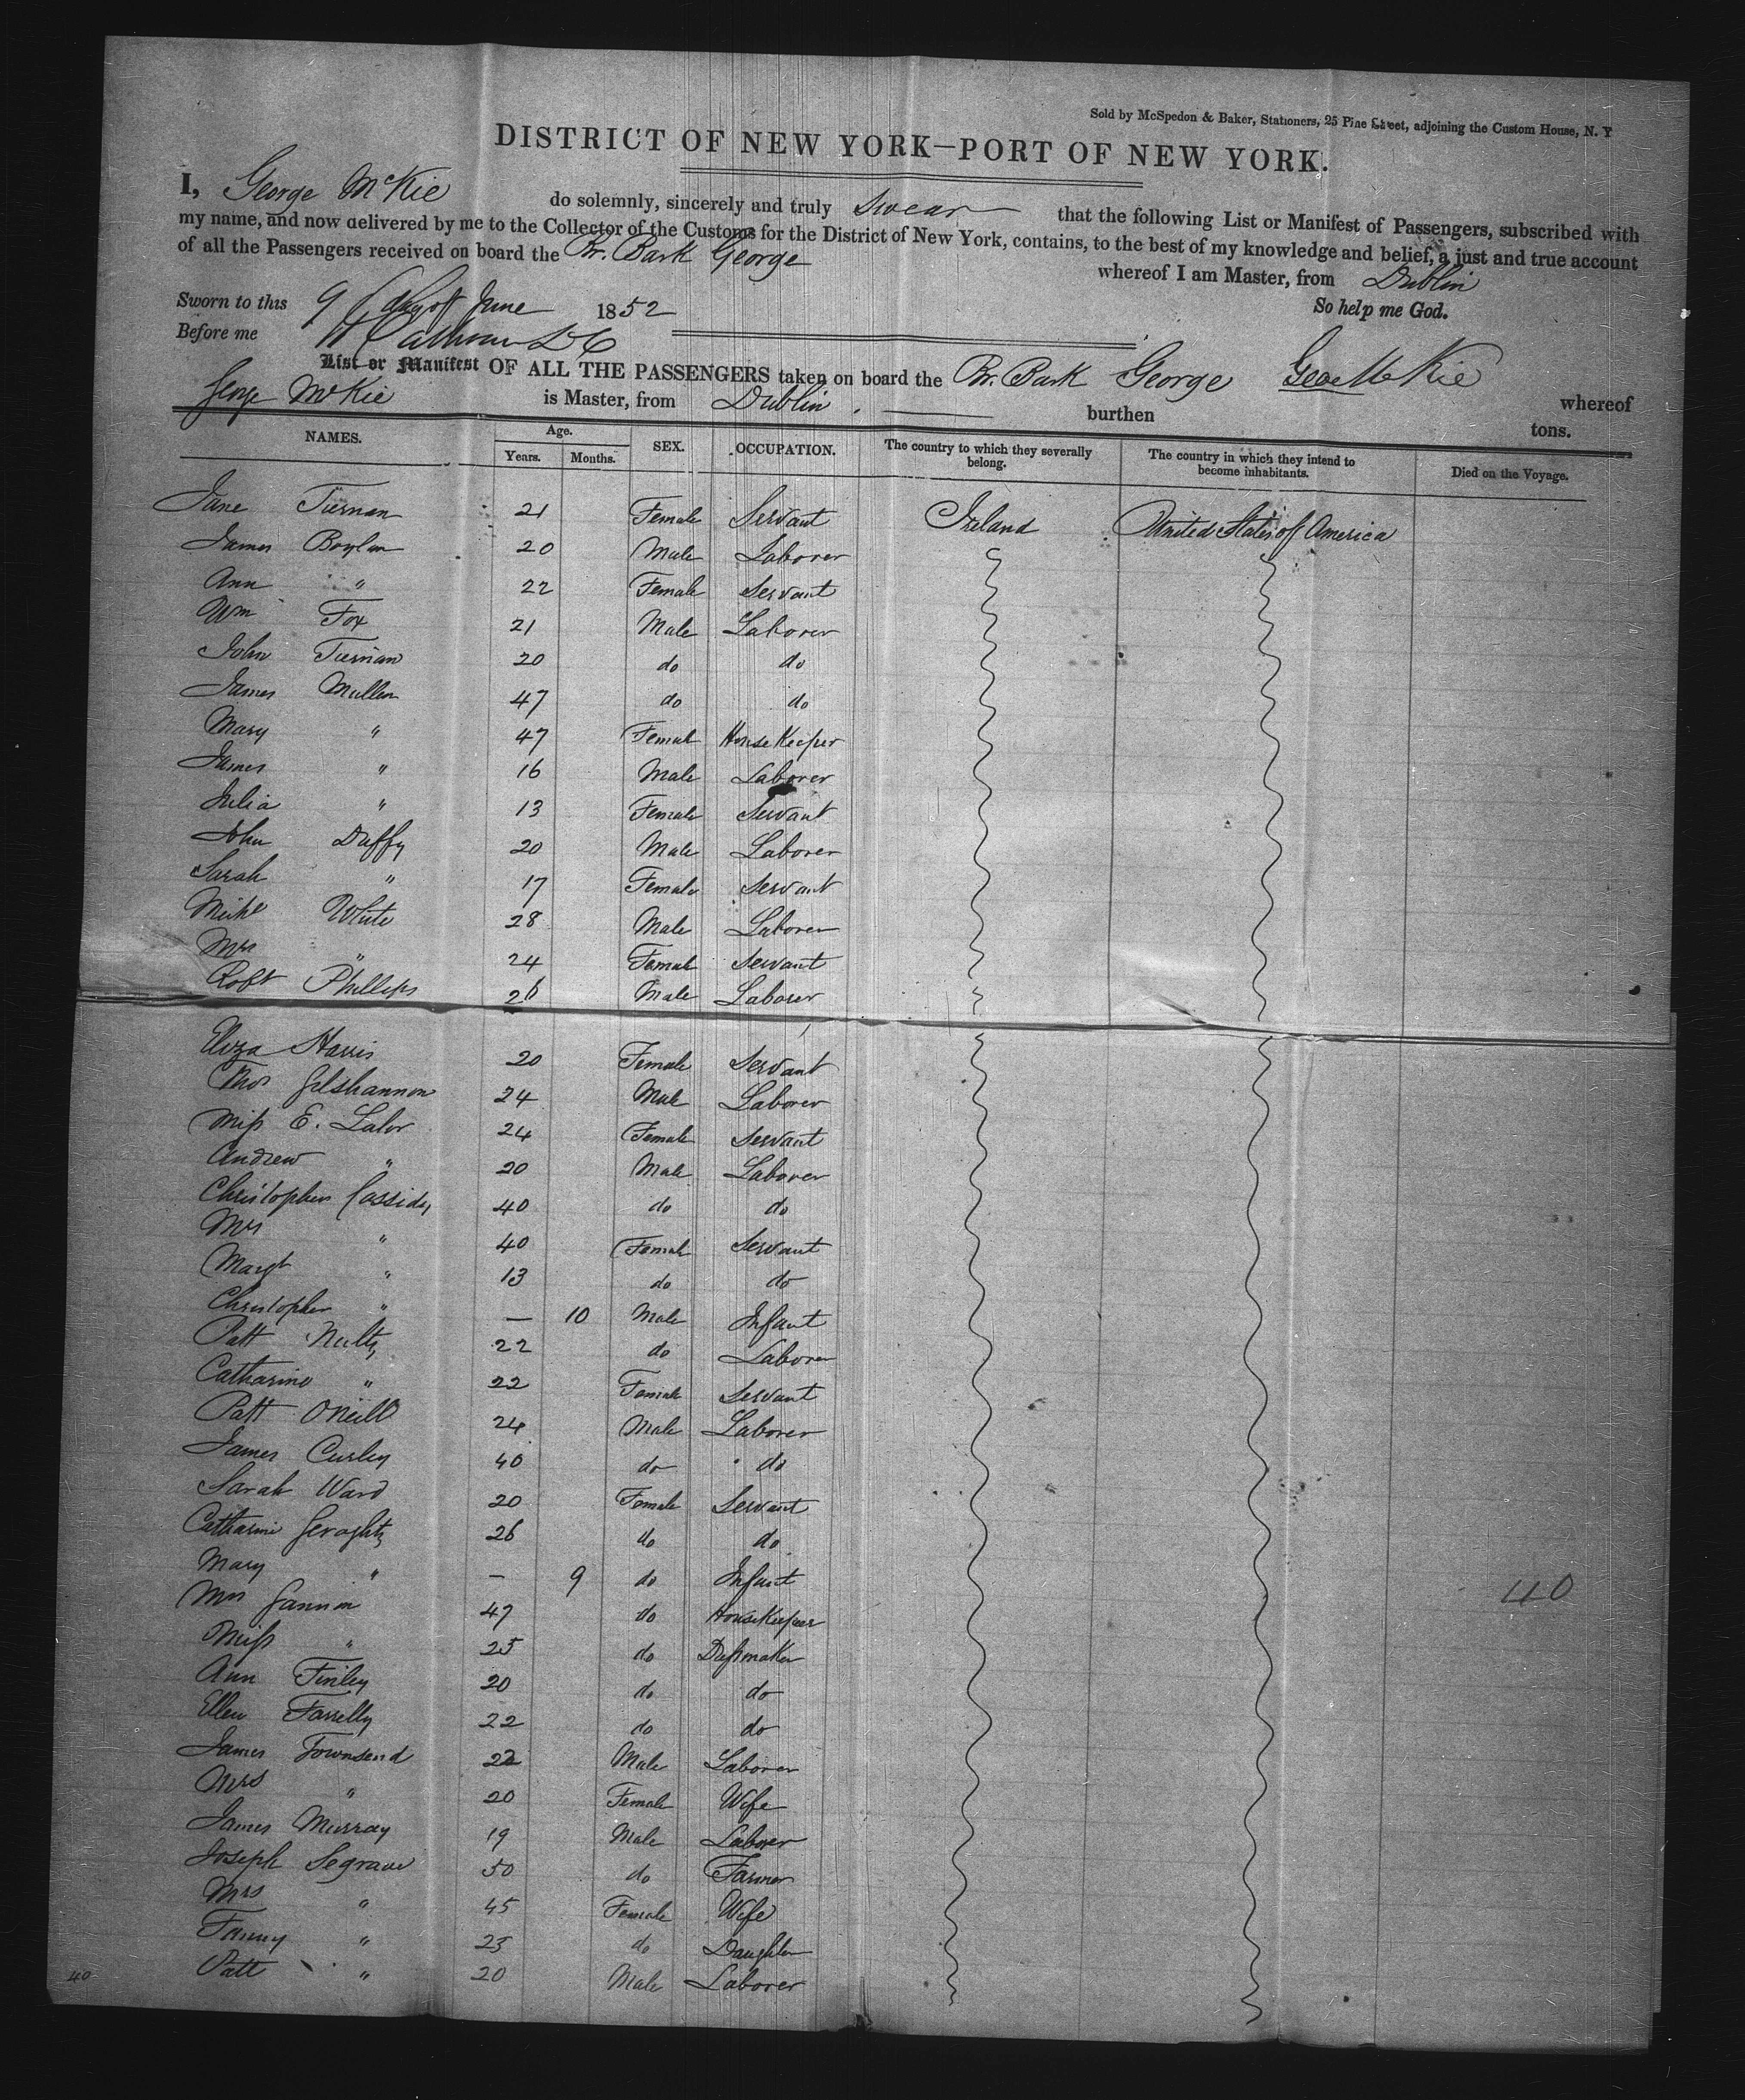 Sold by McSpedon & Baker, Stationers, 25 Pine Street, adjoining the Custom House, N. Y
DISTRICT OF NEW YORK—PORT OF NEW YORK.
I, George McKie do solemnly, sincerely and truly swear that the following List or Manifest of Passengers, subscribed with
my name, and now delivered by me to the Collector of the Customs for the District of New York, contains, to the best of my knowledge and belief, a just and true account
of all the Passengers received on board the Br. Bark George whereof I am Master, from Dublin
Sworn to this 9 day of June 1852 So help me God.
Before me Calhoun DC
List or Manifest OF ALL THE PASSENGERS taken on board the Br. Bark George Geo McKie whereof
George McKie is Master, from Dublin. burthen tons.
NAMES. Age. Years. Months. SEX. OCCUPATION. The country to which they severally belong. The country in which they intend to become inhabitants. Died on the Voyage.
Jane Tiernan 21 Female Servant Ireland United States of America
James Boylan 20 Male Laborer
Ann " 22 Female Servant
Wm Fox 21 Male Laborer
John Tiernan 20 do do
James Mullen 47 do do
Mary " 47 Female HouseKeeper
James " 16 Male Laborer
Julia " 13 Female Servant
John Duffy 20 Male Laborer
Sarah " 17 Female Servant
Michl White 28 Male Laborer
Mrs " 24 Female Servant
Robt Phillips 26 Male Laborer
Eliza Harris 20 Female Servant
Thos Gilshannon 24 Male Laborer
Miss E. Lalor 24 Female Servant
Andrew " 20 Male Laborer
Christopher Cassidy 40 do do
Mrs " 40 Female Servant
Margt " 13 do do
Christopher " — 10 Male Infant
Patt Nulty 22 do Laborer
Catharine " 22 Female Servant
Patt ONeill 24 Male Laborer
James Curley 40 do do
Sarah Ward 20 Female Servant
Catharine Geraghty 26 do do
Mary " — 9 do Infant
Mrs Gannon 47 do HouseKeeper
Miss " 25 do Dressmaker
Ann Finley 20 do do
Ellen Farrelly 22 do do
James Townsend 22 Male Laborer
Mrs " 20 Female Wife
James Murray 19 Male Laborer
Joseph Segrave 50 do Farmer
Mrs " 45 Female Wife
Fanny " 23 do Daughter
Patt " 20 Male Laborer
40
40